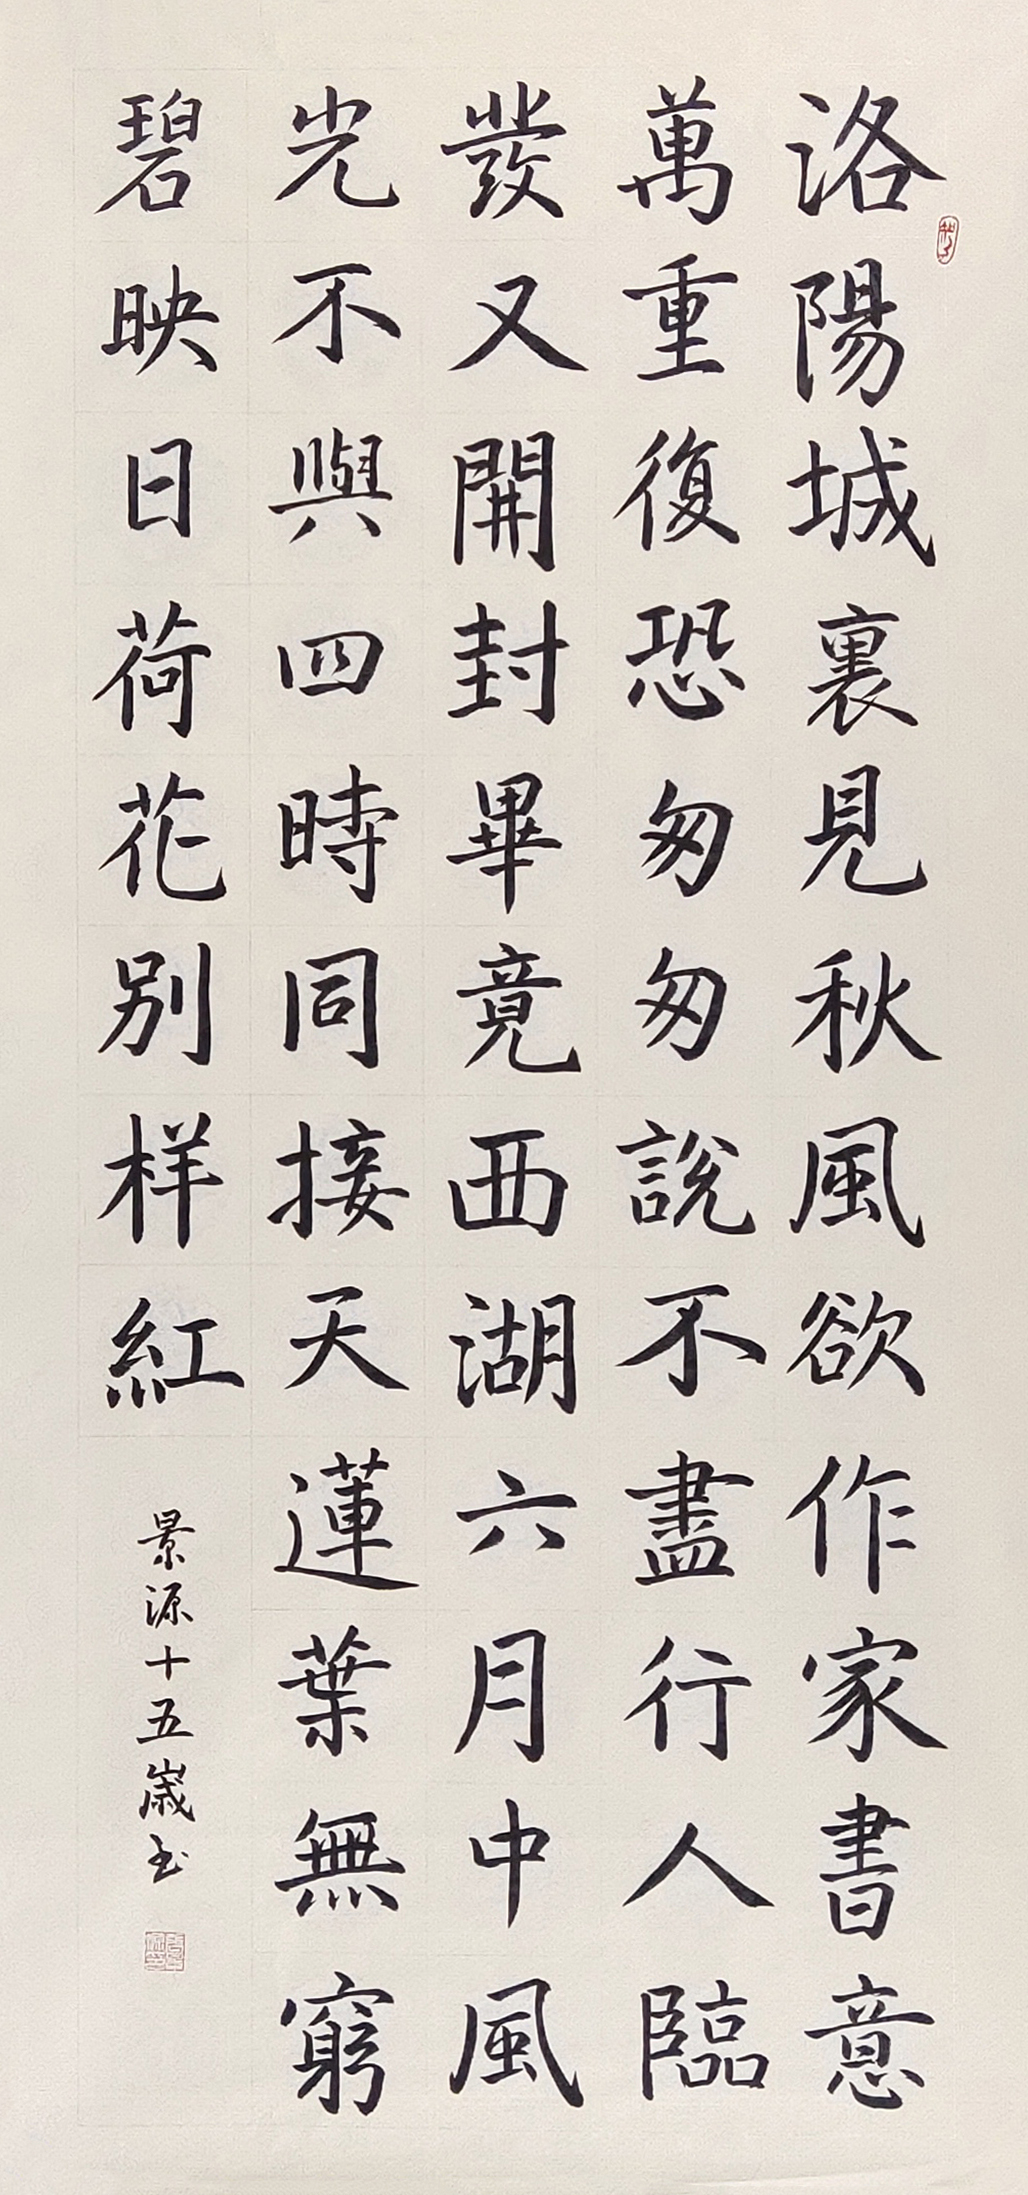 洛陽城裏見秋風欲作家書意
萬重復恐匆匆說不盡行人臨
發又開封畢竟西湖六月中風
光不與四時同接天蓮葉無窮
碧映日荷花別样紅
景源十五歲书